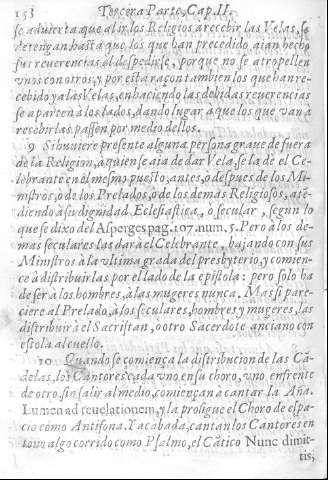 153 Tercera Parte, Cap. II.
se aduierta que al ir los Religiosos a recebir las Velas, se
detengan hasta que los que han precedido aian hecho
sus reuerencias al despedirse, porque no se atropellen
vnos con otros; y por esta raçon tambien los que han re-
cebido ya las Velas, en haciendo las debidas reuerencias
se aparten à los lados, dando lugar à que los que van a
recebirlas passen por medio dellos.
9 Si huuiere presente alguna persona graue de fuera
de la Religion, a quien se aia de dar Vela, se la dè el Ce-
lebrante en el mesmo puesto, antes, ò despues de los Mi-
nistros, ò de los Prelados, ò de los demas Religiosos, atẽ-
diendo à su dignidad Eclesiastica, ò secular, segun lo
que se dixo del Asperges pag. 107. num. 5. Pero à los de-
mas seculares las darà el Celebrante, bajando con sus
Ministros à la vltima grada del presbyterio, y comien-
ce à distribuirlas por el lado de la epistola: pero solo ha
de ser à los hombres, à las mugeres nunca. Mas si pare-
ciere al Prelado, à los seculares, hombres y mugeres, las
distribuirà el Sacristan, o otro Sacerdote anciano con
estola al cuello.
10 Quando se comiença la distribucion de las Cã-
delas, los Cantores cada vno en su choro, vno enfrente
de otro, sin salir al medio, comiençan à cantar la Aña.
Lumen ad reuelationem, y la prosigue el Choro de espa-
cio como Antifona. Y acabada, cantan los Cantores en
tono algo corrido como Psalmo, el Cãtico Nunc dimit-
tis,